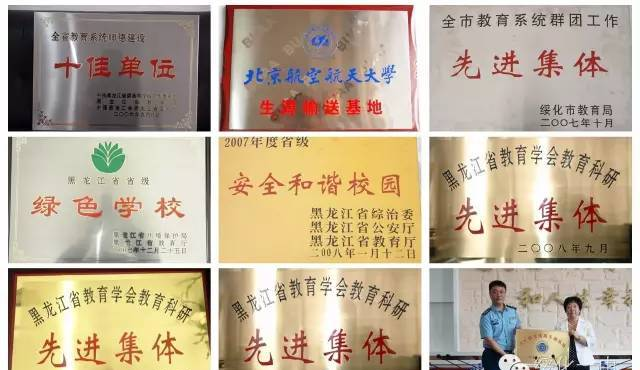 全省教育系统师德建设
十佳单位
北京航空航天大学
生源输送基地
全市教育系统群团工作
先进集体
绥化市教育局
二〇〇七年十月
黑龙江省省级
绿色学校
黑龙江省环境保护局
黑龙江省教育厅
2007年度省级
安全和谐校园
黑龙江省综治委
黑龙江省公安厅
黑龙江省教育厅
二00八年一月十二日
黑龙江省教育学会教育科研
先进集体
二〇〇八年九月
黑龙江省教育学会教育科研
先进集体
黑龙江省教育学会教育科研
先进集体